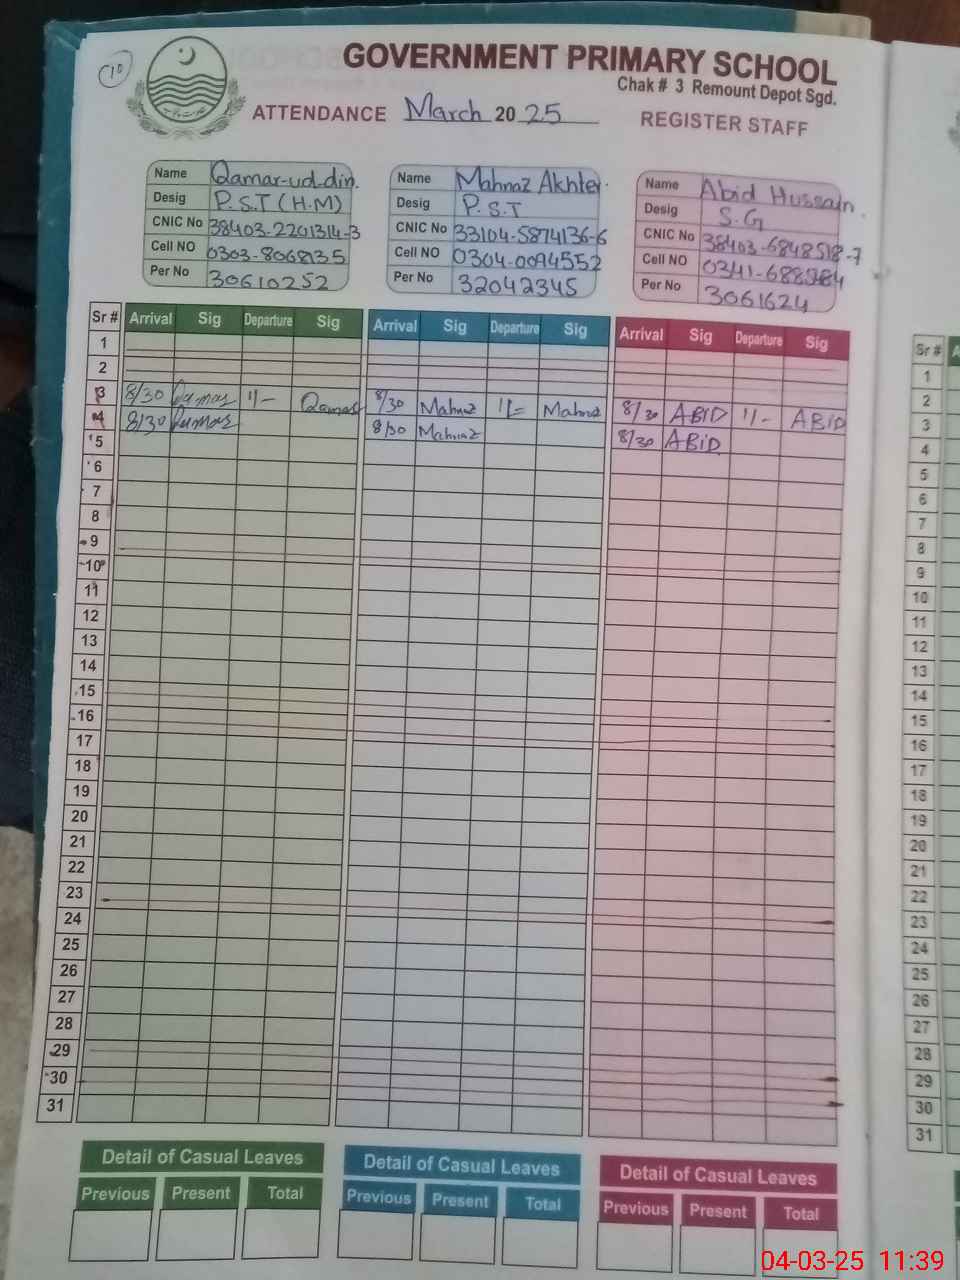 10
GOVERNMENT PRIMARY SCHOOL
Chak # 3 Remount Depot Sgd.
ATTENDANCE March 2025 REGISTER STAFF
Name Qamar-ud-din.
Desig P.S.T (H.M)
CNIC No 38403-2201314-3
Cell NO 0303-8068135
Per No 30610252
Name Mahnaz Akhter.
Desig P.S.T
CNIC No 33104-5874136-6
Cell NO 0304-0094552
Per No 32042345
Name Abid Hussain.
Desig S.G
CNIC No 38403-6848518-7
Cell NO
Per No 3061624
Sr # Arrival Sig Departure Sig Arrival Sig Departure Sig Arrival Sig Departure Sig
1
2
3 8/30 Qamar 1/- Qamar 8/30 Mahnaz 1/= Mahnaz 8/30 ABID 1/- ABID
4 8/30 Qamar 8/30 Mahnaz 8/30 ABID
5
6
7
8
9
10
11
12
13
14
15
16
17
18
19
20
21
22
23
24
25
26
27
28
29
30
31
Detail of Casual Leaves
Previous Present Total
Detail of Casual Leaves
Previous Present Total
Detail of Casual Leaves
Previous Present Total
Sr # A
1
2
3
4
5
6
7
8
9
10
11
12
13
14
15
16
17
18
19
20
21
22
23
24
25
26
27
28
29
30
31
04-03-25 11:39